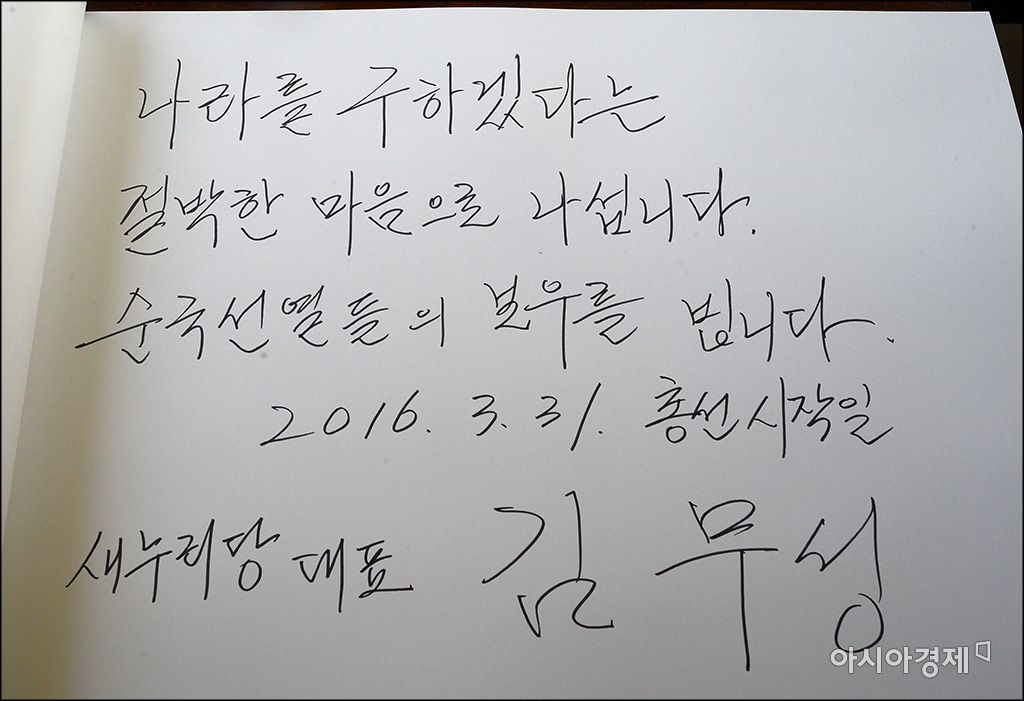 나라를 구하겠다는
절박한 마음으로 나섭니다.
순국선열들의 보우를 빕니다.
2016. 3. 31. 총선시작일
새누리당 대표 김무성
아시아경제